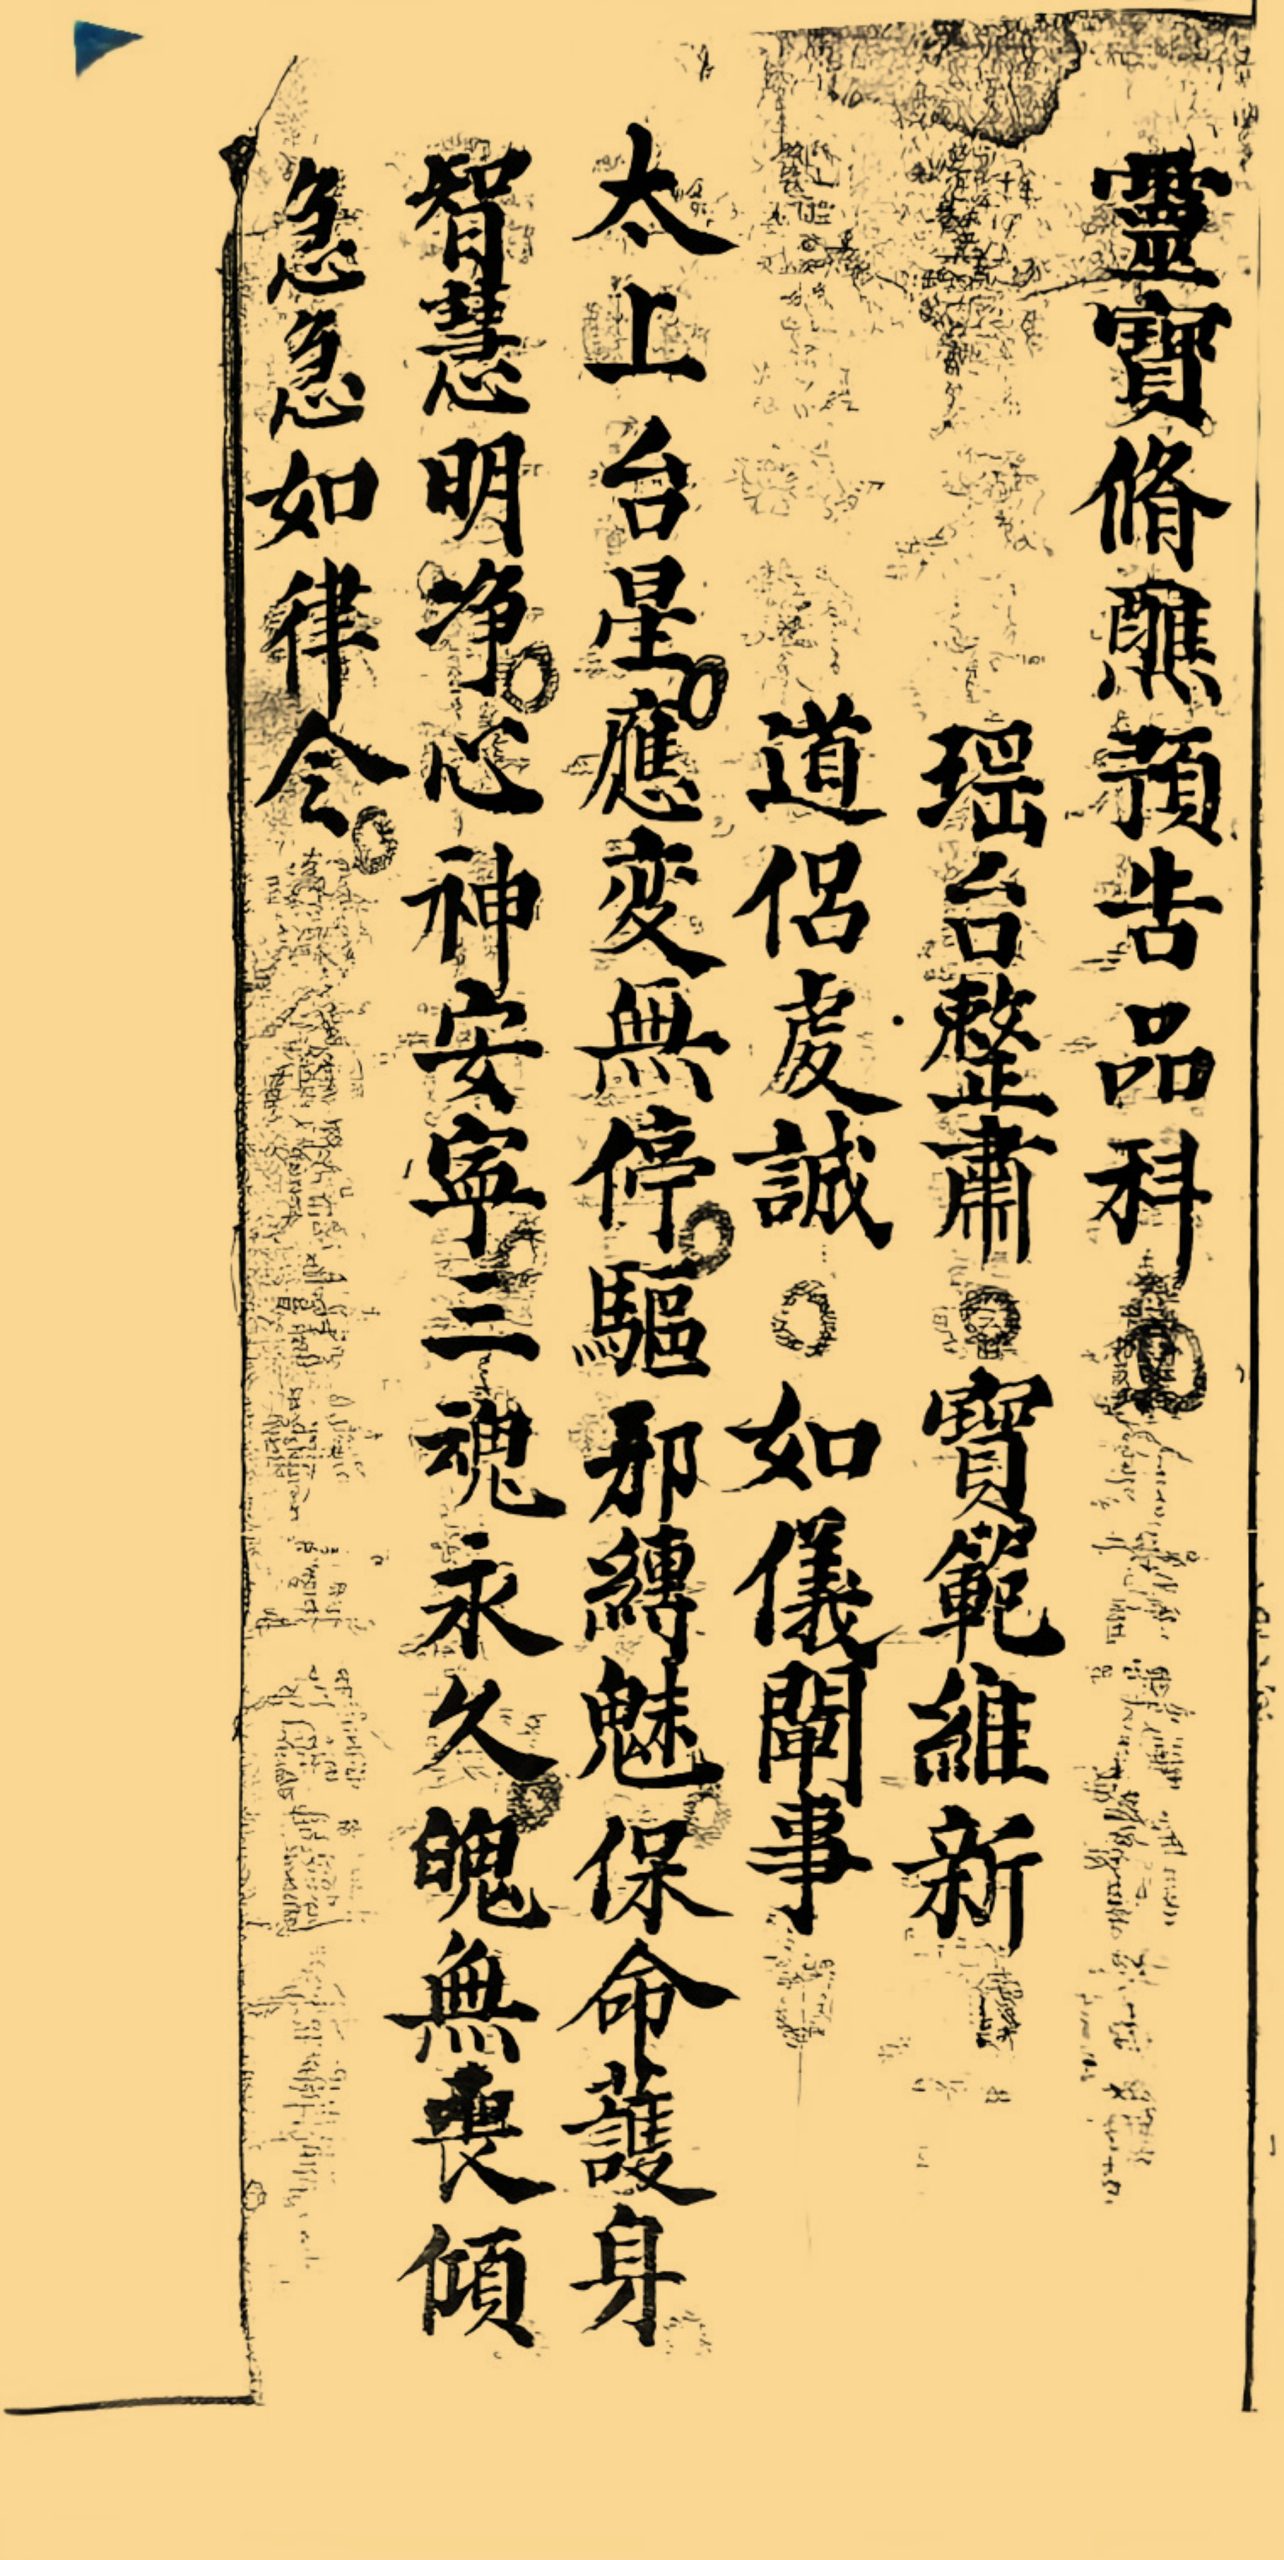 靈寶脩醮預告品科
瑶台整肅○寶範維新
道侣虔誠○如儀闡事
太上台星應变無停驅邪縛魅保命護身
智慧明净心神安寧三魂永久魄無喪傾
急急如律令